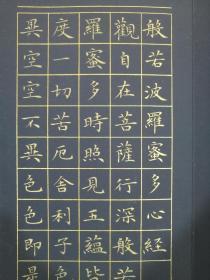 般若波羅蜜多心経
觀自在菩薩行深般若
羅蜜多時照見五蘊皆
度一切苦厄舍利子色
異空空不異色色即是